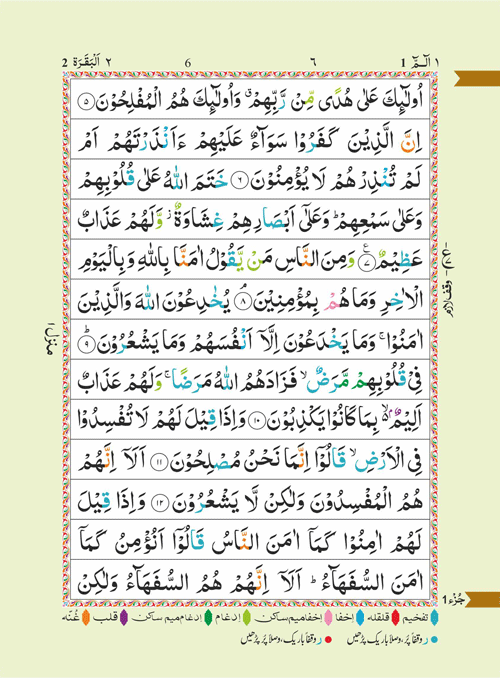 ١ الٓـمّٓ 1    ٦    6    ٢ اَلْبَقَرَة 2
اُولٰٓئِكَ عَلٰى هُدًى مِّنْ رَّبِّهِمْ ۙ وَاُولٰٓئِكَ هُمُ الْمُفْلِحُوْنَ ﴿٥﴾
اِنَّ الَّذِيْنَ كَفَرُوْا سَوَآءٌ عَلَيْهِمْ ءَاَنْذَرْتَهُمْ اَمْ
لَمْ تُنْذِرْهُمْ لَا يُؤْمِنُوْنَ ﴿٦﴾ خَتَمَ اللّٰهُ عَلٰى قُلُوْبِهِمْ
وَعَلٰى سَمْعِهِمْ ؕ وَعَلٰٓى اَبْصَارِهِمْ غِشَاوَةٌ ز وَّلَهُمْ عَذَابٌ
عَظِيْمٌ ﴿٧﴾ ع وَمِنَ النَّاسِ مَنْ يَّقُوْلُ اٰمَنَّا بِاللّٰهِ وَبِالْيَوْمِ
الْاٰخِرِ وَمَا هُمْ بِمُؤْمِنِيْنَ ﴿٨﴾ ۘ يُخٰدِعُوْنَ اللّٰهَ وَالَّذِيْنَ
اٰمَنُوْا ۚ وَمَا يَخْدَعُوْنَ اِلَّآ اَنْفُسَهُمْ وَمَا يَشْعُرُوْنَ ﴿٩﴾ ؕ
فِيْ قُلُوْبِهِمْ مَّرَضٌ ۙ فَزَادَهُمُ اللّٰهُ مَرَضًا ۚ وَلَهُمْ عَذَابٌ
اَلِيْمٌ ۢ ۙ بِمَا كَانُوْا يَكْذِبُوْنَ ﴿١٠﴾ وَاِذَا قِيْلَ لَهُمْ لَا تُفْسِدُوْا
فِى الْاَرْضِ ۙ قَالُوْٓا اِنَّمَا نَحْنُ مُصْلِحُوْنَ ﴿١١﴾ اَلَآ اِنَّهُمْ
هُمُ الْمُفْسِدُوْنَ وَلٰكِنْ لَّا يَشْعُرُوْنَ ﴿١٢﴾ وَاِذَا قِيْلَ
لَهُمْ اٰمِنُوْا كَمَآ اٰمَنَ النَّاسُ قَالُوْٓا اَنُؤْمِنُ كَمَآ
اٰمَنَ السُّفَهَآءُ ؕ اَلَآ اِنَّهُمْ هُمُ السُّفَهَآءُ وَلٰكِنْ
وقف لازم
منزل ١
جُزء 1
تفخیم قلقلہ اخفا اخفا میم ساکن ادغام ادغام میم ساکن قلب غُنّہ
ر وقفاً پُر، وصلاً باریک پڑھیں ر وقفاً باریک، وصلاً پُر پڑھیں